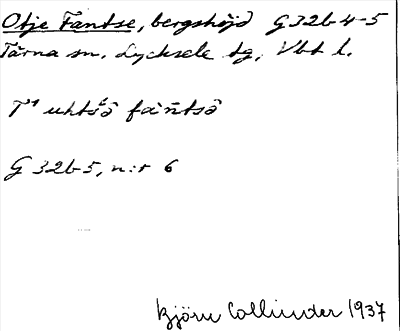 Otje Fantse, bergshöjd G32b4-5
Tärna sn. Lycksele tg. Vbt l.
G 32b5, n:r 6
Björn Collinder 1937